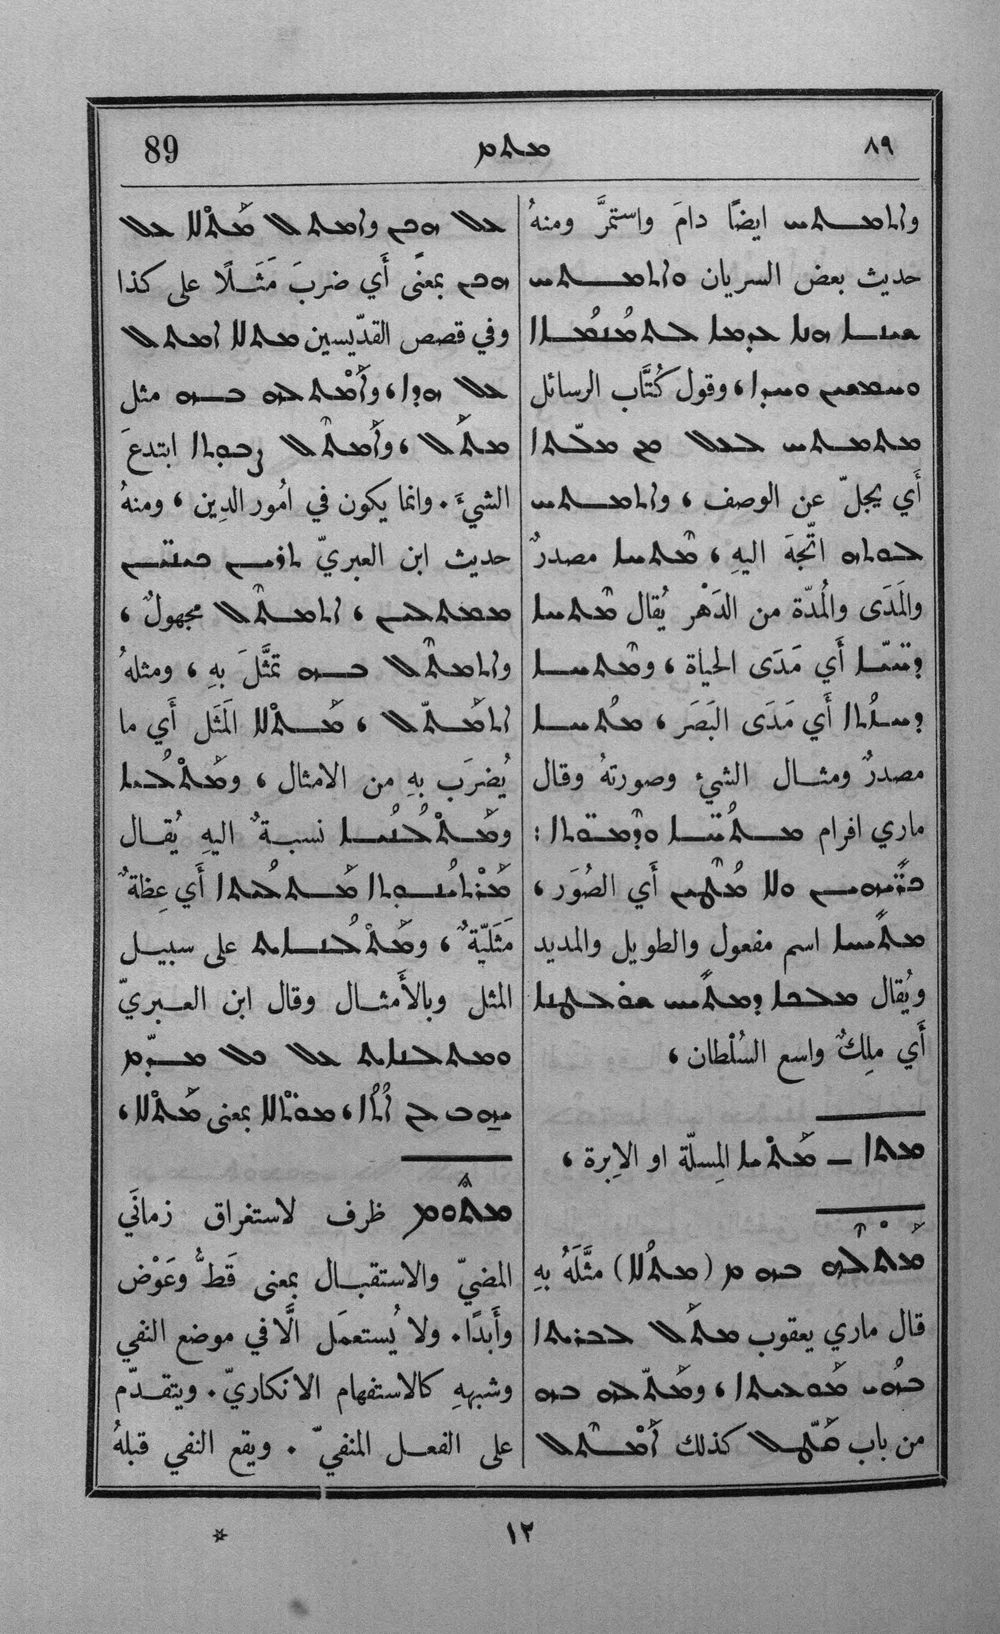 89 ܡܬܡ ٨٩
ܘܐܬܡܬܚ ايضًا دامَ واستمرَّ ومنهُ
حديث بعض السريان ܘܐܬܡܬܚ
ܥܢܝܢܐ
أَي يجلّ عن الوصف ، ܘܐܬܡܬܚ
ܠܘܬܗ اتّجهَ اليهِ ، ܡܬܚܐ مصدرٌ
والمَدَى والمُدّة من الدَهْر يُقال ܡܬܚܐ
ܕܚܝ̈ܐ أَي مَدَى الحياة ، ܘܡܬܚܐ
ܕܚܙܬܐ أَي مَدَى البَصَر ، ܡܬܚܐ
مصدرٌ ومثـال الشيءِ وصورتهُ وقال
ماري افرام
ܘܠܐ أَي الصُوَر ،
ܡܬܝܚܐ اسم مفعول والطويل والمديد
ويُقال ܡܠܟܐ ܕܡܬܝܚ ܫܘܠܛܢܐ
أَي ملِكٌ واسع السُلْطان ،
ܡܬܐ ـ ܡܬܝܐ المِسلّة او الاِبرة ،
ܡܬܠܗ ܒܗ ܡ (ܡܬܠܐ) مثَّلَهُ بهِ
قال ماري يعقوب ܡܬܠ ܠܒܪܝܬܐ
ܒܗܝ ، ܘܡܬܠܗ ܒܗ
من باب ܩܛܠ كذلك ܐܡܬܠ
ܥܠ ܗܟܢ ܘܐܡܬܠ ܡܬܠܐ ܥܠ
ܗܟܢ بمعنًى أَي ضربَ مَثَـلًا على كذا
وفي قصص القدّيسين ܡܬܠܐ ܐܡܬܠ
ܥܠ ܗܕܐ ، ܘܐܡܬܠܗ ܒܗ مثل
ܡܬܠ ، ܘܐܡܬܠ ܨܒܘܬܐ ابتدعَ
الشيءَ . وانما يكون في امُور الدِين ، ومنهُ
حديث ابن العبريّ ܬܪܝܢ
، ܐܬܡܬܠ مجهولٌ ،
ܘܐܬܡܬܠ ܒܗ تمثَّلَ بهِ ، ومثلهُ
ܐܬܡܬܠ ، ܡܬܠܐ المَثَل أَي ما
يُضرَب بهِ من الامثال ، ܘܡܬܠܝܐ
ܘܡܬܠܢܝܐ نسبةٌ اليهِ يُقـال
ܡܪܬܝܢܘܬܐ ܡܬܠܝܬܐ أَي عِظةٌ
مَثَليّةٌ ، ܘܡܬܠܢܐܝܬ على سبيـل
المثل وبالأَمثـال وقال ابن العـبريّ
ܘܡܬܠܢܐܝܬ ܥܠ ܟܠ ܡܕܡ
ܝܗܒ ، بمعنى ܡܬܠܐ ،
ܡܬܘܡ ظرف لاستغراق زمانَي
المضيّ والاستقبـال بمعنى قَطُّ وعَوْض
وأَبدًا . ولا يُستعمَل الَّا في موضع النفي
وشبههِ كالاستفهام الانكاريّ . ويتقـدّم
على الفعـل المنفيّ . ويقع النفي قبلهُ
١٢ *